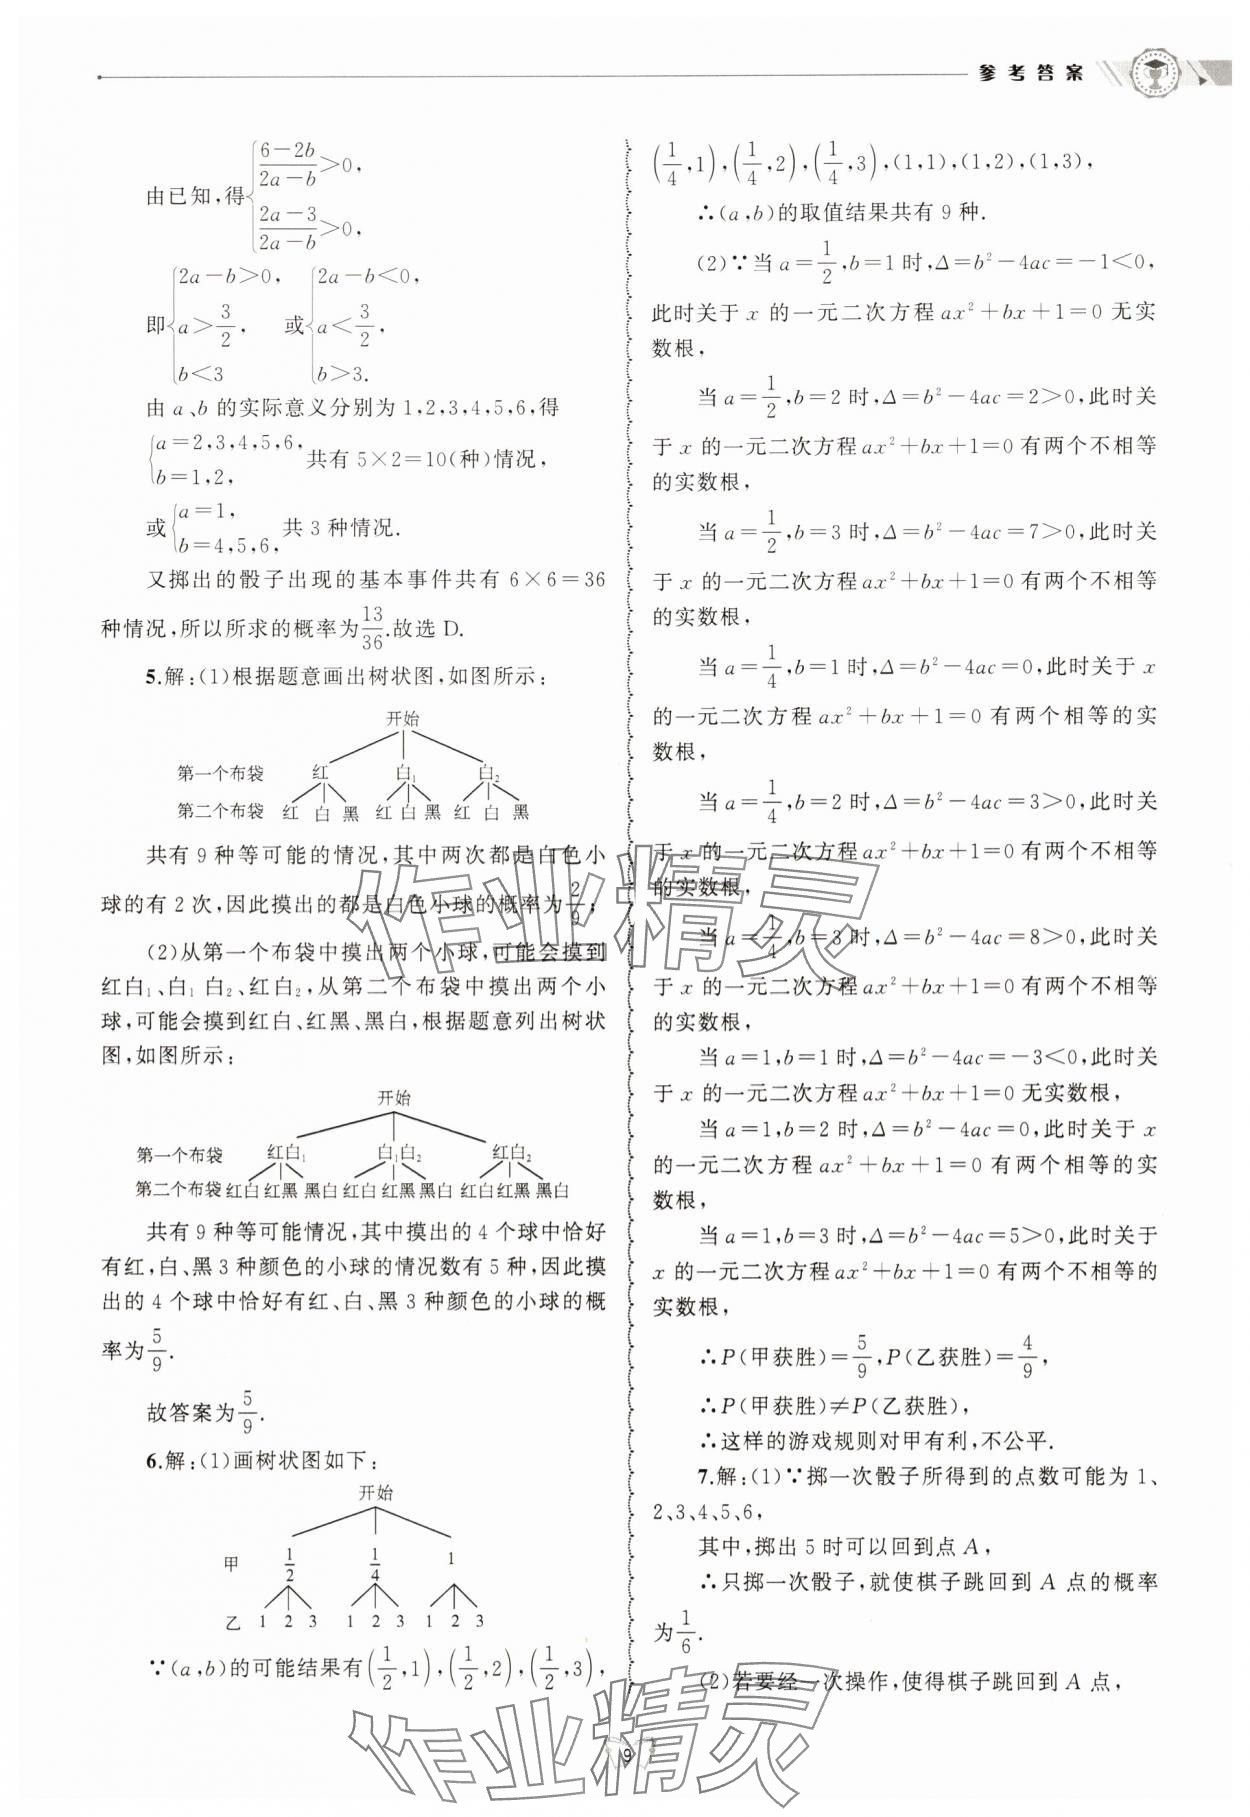 参考答案
由已知,得{(6-2b)/(2a-b)>0,
(2a-3)/(2a-b)>0,
即{2a-b>0, a>3/2, b<3 或{2a-b<0, a<3/2, b>3.
由 a、b 的实际意义分别为 1,2,3,4,5,6,得
{a=2,3,4,5,6, b=1,2, 共有 5×2=10(种)情况,
或{a=1, b=4,5,6, 共 3 种情况.
又掷出的骰子出现的基本事件共有 6×6=36
种情况,所以所求的概率为13/36.故选 D.
5.解:(1)根据题意画出树状图,如图所示:
开始
第一个布袋 红 白₁ 白₂
第二个布袋 红 白 黑 红 白 黑 红 白 黑
共有 9 种等可能的情况,其中两次都是白色小
球的有 2 次,因此摸出的都是白色小球的概率为2/9;
(2)从第一个布袋中摸出两个小球,可能会摸到
红白₁、白₁ 白₂、红白₂,从第二个布袋中摸出两个小
球,可能会摸到红白、红黑、黑白,根据题意列出树状
图,如图所示:
开始
第一个布袋 红白₁ 白₁白₂ 红白₂
第二个布袋 红白 红黑 黑白 红白 红黑 黑白 红白 红黑 黑白
共有 9 种等可能情况,其中摸出的 4 个球中恰好
有红,白、黑 3 种颜色的小球的情况数有 5 种,因此摸
出的 4 个球中恰好有红、白、黑 3 种颜色的小球的概
率为5/9.
故答案为5/9.
6.解:(1)画树状图如下:
开始
甲 1/2 1/4 1
乙 1 2 3 1 2 3 1 2 3
∵(a,b)的可能结果有(1/2,1),(1/2,2),(1/2,3),
(1/4,1),(1/4,2),(1/4,3),(1,1),(1,2),(1,3),
∴(a,b)的取值结果共有 9 种.
(2)∵当 a=1/2,b=1 时,Δ=b²-4ac=-1<0,
此时关于 x 的一元二次方程 ax²+bx+1=0 无实
数根,
当 a=1/2,b=2 时,Δ=b²-4ac=2>0,此时关
于 x 的一元二次方程 ax²+bx+1=0 有两个不相等
的实数根,
当 a=1/2,b=3 时,Δ=b²-4ac=7>0,此时关
于 x 的一元二次方程 ax²+bx+1=0 有两个不相等
的实数根,
当 a=1/4,b=1 时,Δ=b²-4ac=0,此时关于 x
的一元二次方程 ax²+bx+1=0 有两个相等的实
数根,
当 a=1/4,b=2 时,Δ=b²-4ac=3>0,此时关
于 x 的一元二次方程 ax²+bx+1=0 有两个不相等
的实数根,
当 a=1/4,b=3 时,Δ=b²-4ac=8>0,此时关
于 x 的一元二次方程 ax²+bx+1=0 有两个不相等
的实数根,
当 a=1,b=1 时,Δ=b²-4ac=-3<0,此时关
于 x 的一元二次方程 ax²+bx+1=0 无实数根,
当 a=1,b=2 时,Δ=b²-4ac=0,此时关于 x
的一元二次方程 ax²+bx+1=0 有两个相等的实
数根,
当 a=1,b=3 时,Δ=b²-4ac=5>0,此时关于
x 的一元二次方程 ax²+bx+1=0 有两个不相等的
实数根,
∴P(甲获胜)=5/9,P(乙获胜)=4/9,
∴P(甲获胜)≠P(乙获胜),
∴这样的游戏规则对甲有利,不公平.
7.解:(1)∵掷一次骰子所得到的点数可能为 1、
2,3、4、5、6,
其中,掷出 5 时可以回到点 A,
∴只掷一次骰子,就使棋子跳回到 A 点的概率
为1/6.
(2)若要经一次操作,使得棋子跳回到 A 点,
作业精灵
作业精灵
9